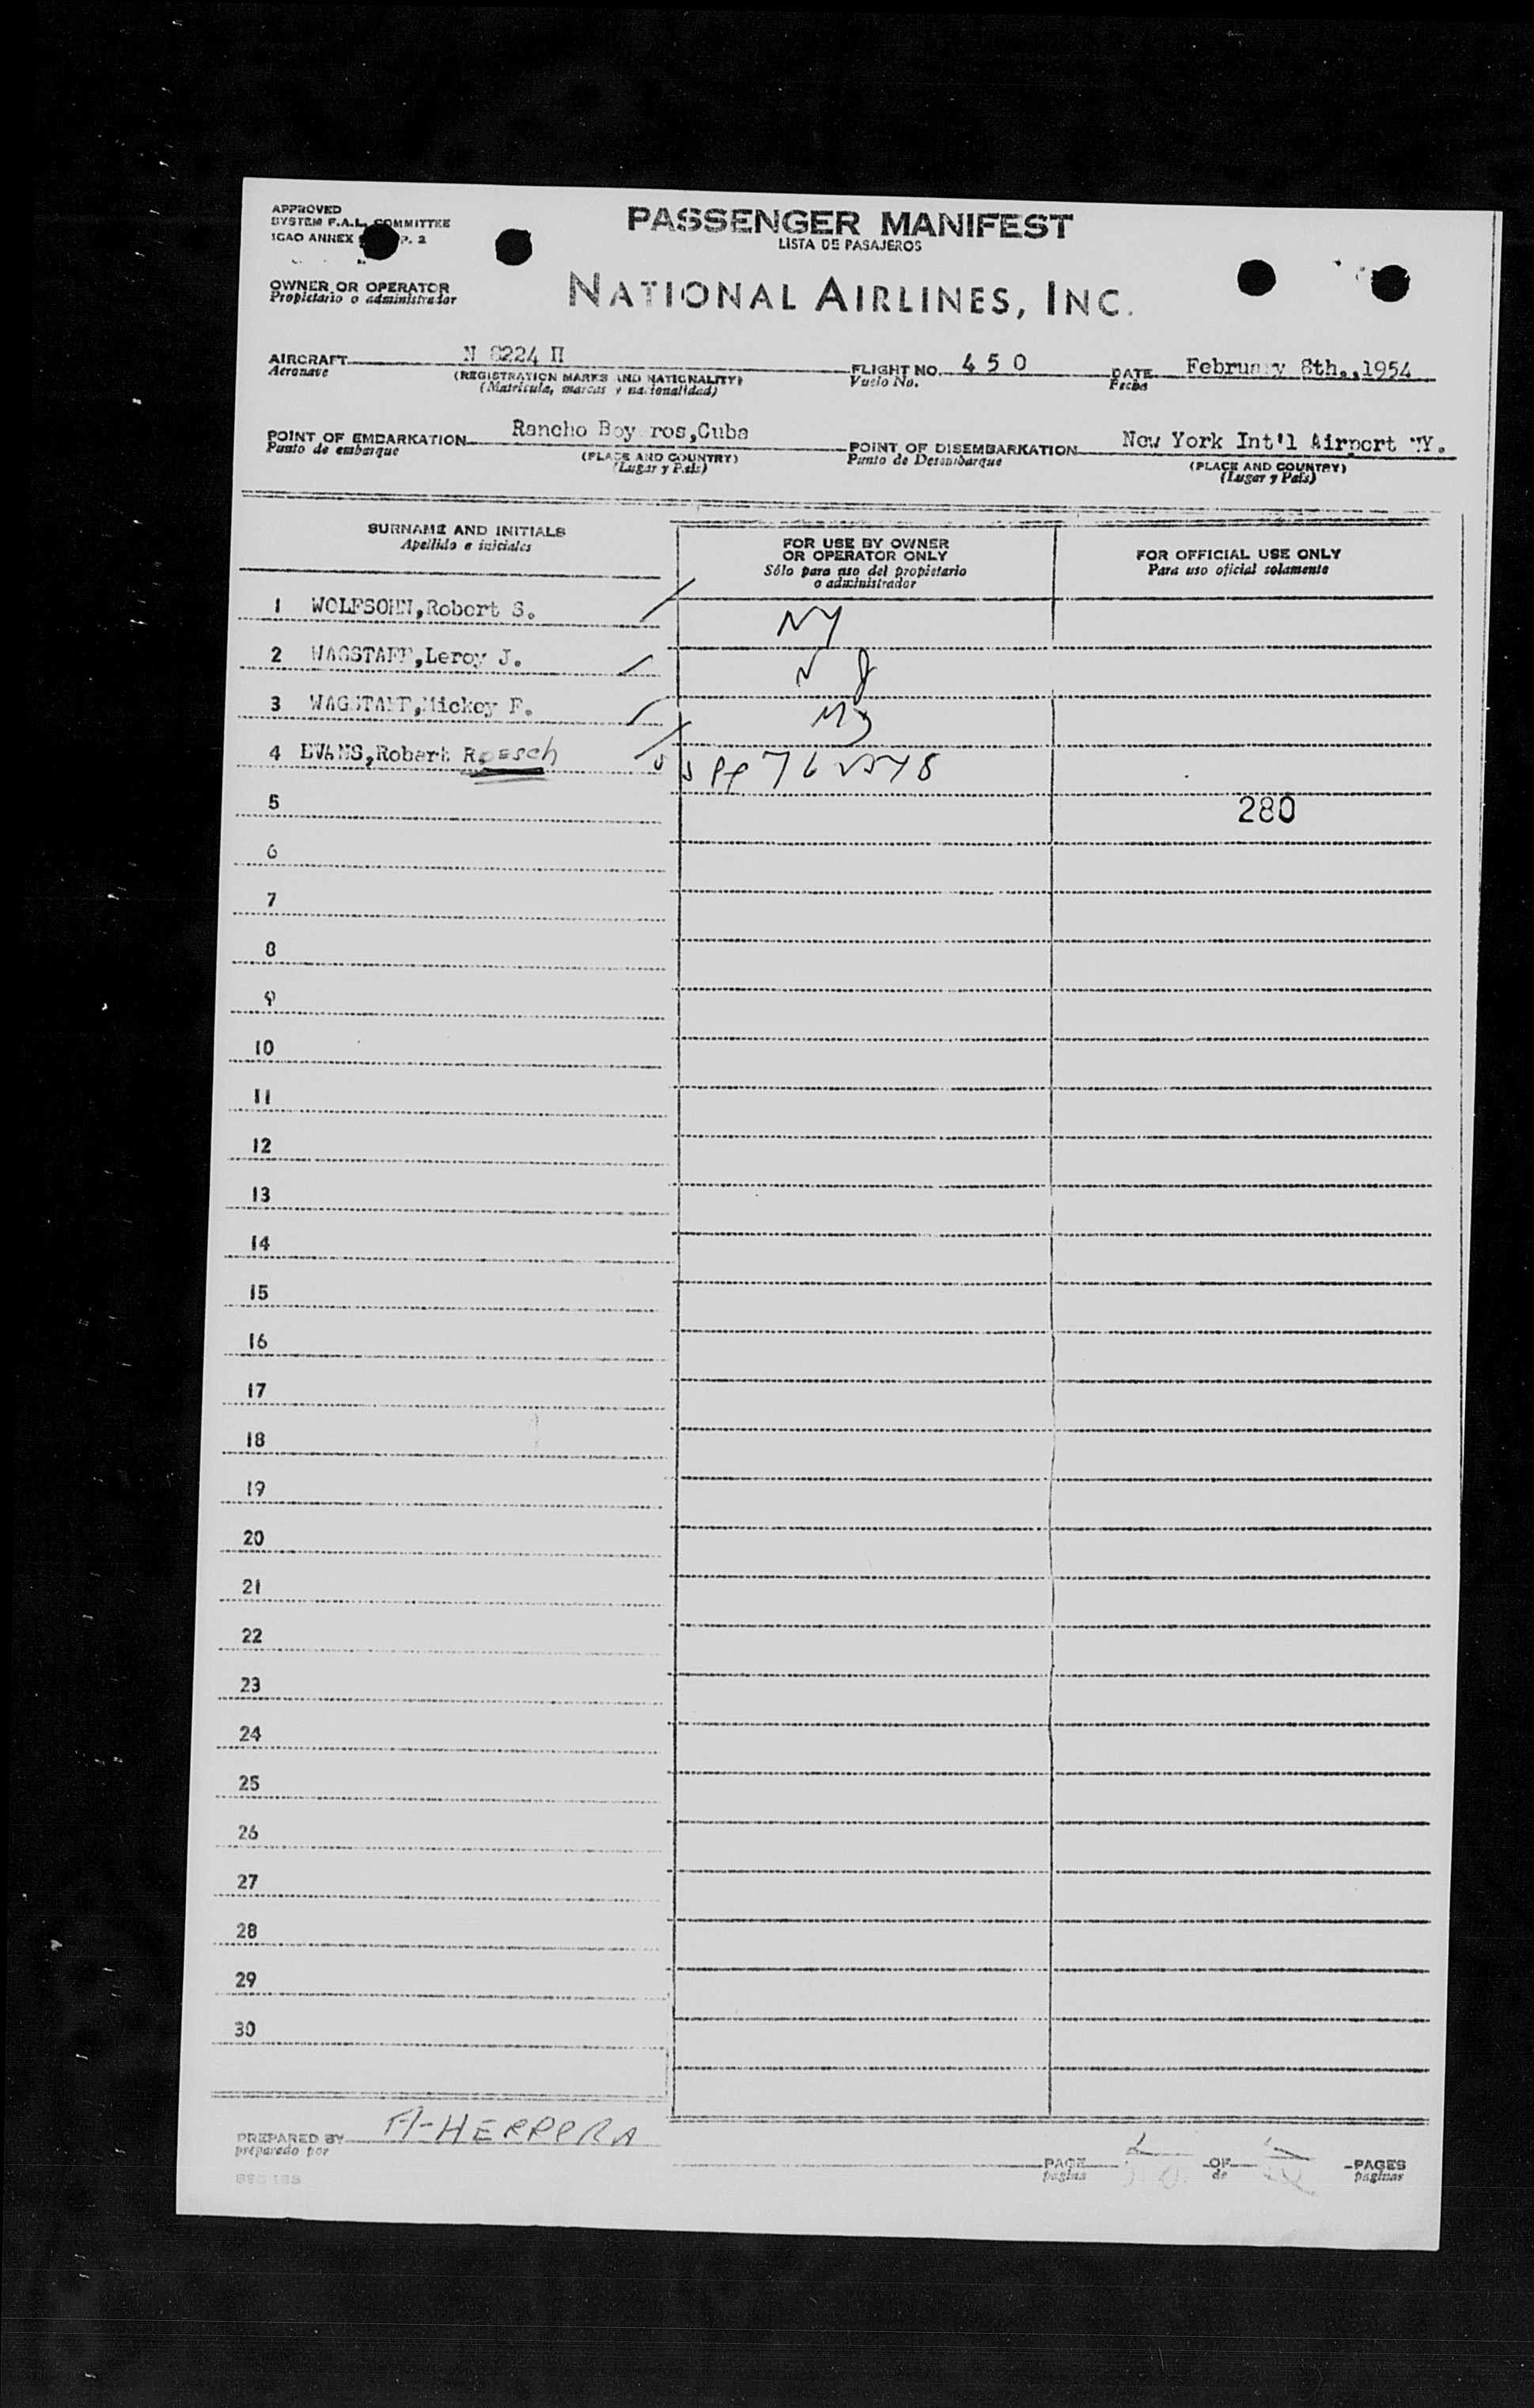 APPROVED
SYSTEM F.A.L. COMMITTEE
ICAO ANNEX P. 2
PASSENGER MANIFEST
LISTA DE PASAJEROS
OWNER OR OPERATOR
Propietario o administrador
NATIONAL AIRLINES, INC.
AIRCRAFT N 8224 H
Aeronave
(REGISTRATION MARKS AND NATIONALITY)
(Matricula, marcas y nacionalidad)
FLIGHT NO. 4 5 0
Vuelo No.
DATE February 8th.,1954
Fecha
POINT OF EMBARKATION Rancho Boyeros,Cuba
Punto de embarque
(PLACE AND COUNTRY)
(Lugar y País)
POINT OF DISEMBARKATION New York Int'l Airport NY.
Punto de Desembarque
(PLACE AND COUNTRY)
(Lugar y País)
SURNAME AND INITIALS
Apellido e iniciales
FOR USE BY OWNER
OR OPERATOR ONLY
Sólo para uso del propietario
o administrador
FOR OFFICIAL USE ONLY
Para uso oficial solamente
1 WOLFSOHN,Robert S. NY
2 WAGSTAFF,Leroy J. NJ
3 WAGSTAFF,Mickey F. NJ
4 EVANS,Robert Roesch
5 280
6
7
8
9
10
11
12
13
14
15
16
17
18
19
20
21
22
23
24
25
26
27
28
29
30
PREPARED BY A-HERRERA
preparado por
PAGE OF PAGES
pagina de paginas